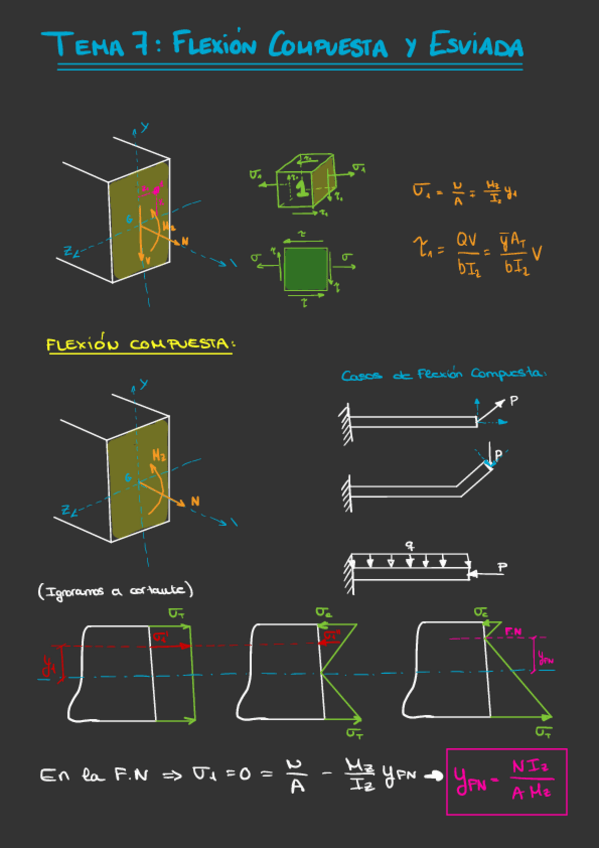 TEMA 7: FLEXIÓN COMPUESTA Y ESVIADA
Y
G
Mz
Z
N
V
σ1
σ1
1
τ1
τ1
τ1
τ
σ
σ
τ
τ
τ
σ1 = N/A = Mz/Iz y1
τ1 = QV/bIz = ȳAT/bIz V
FLEXIÓN COMPUESTA:
Casos de Flexión Compuesta:
Y
Mz
G
Z
N
P
P
q
P
(Ignoramos a cortante)
σT
σ1
y1
σc
σ1
σT
σc
F.N
yFN
σT
En la F.N ⇒ σ1 = 0 = N/A - Mz/Iz yFN → yFN = NIz/AMz